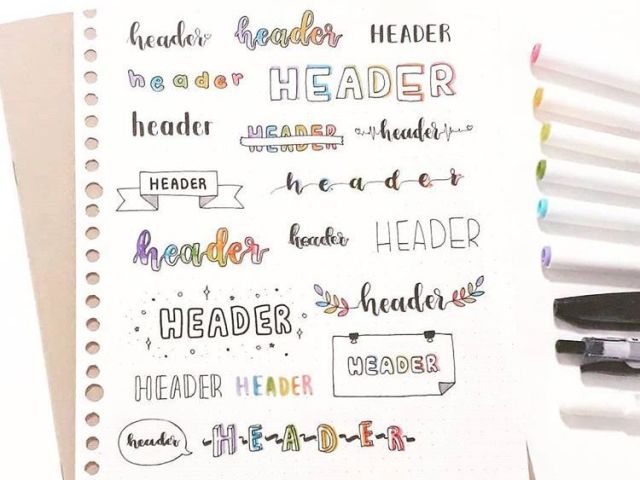 header header HEADER
header HEADER
header HEADER header
HEADER header
header header HEADER
HEADER header
HEADER
HEADER HEADER
header H-E-A-D-E-R